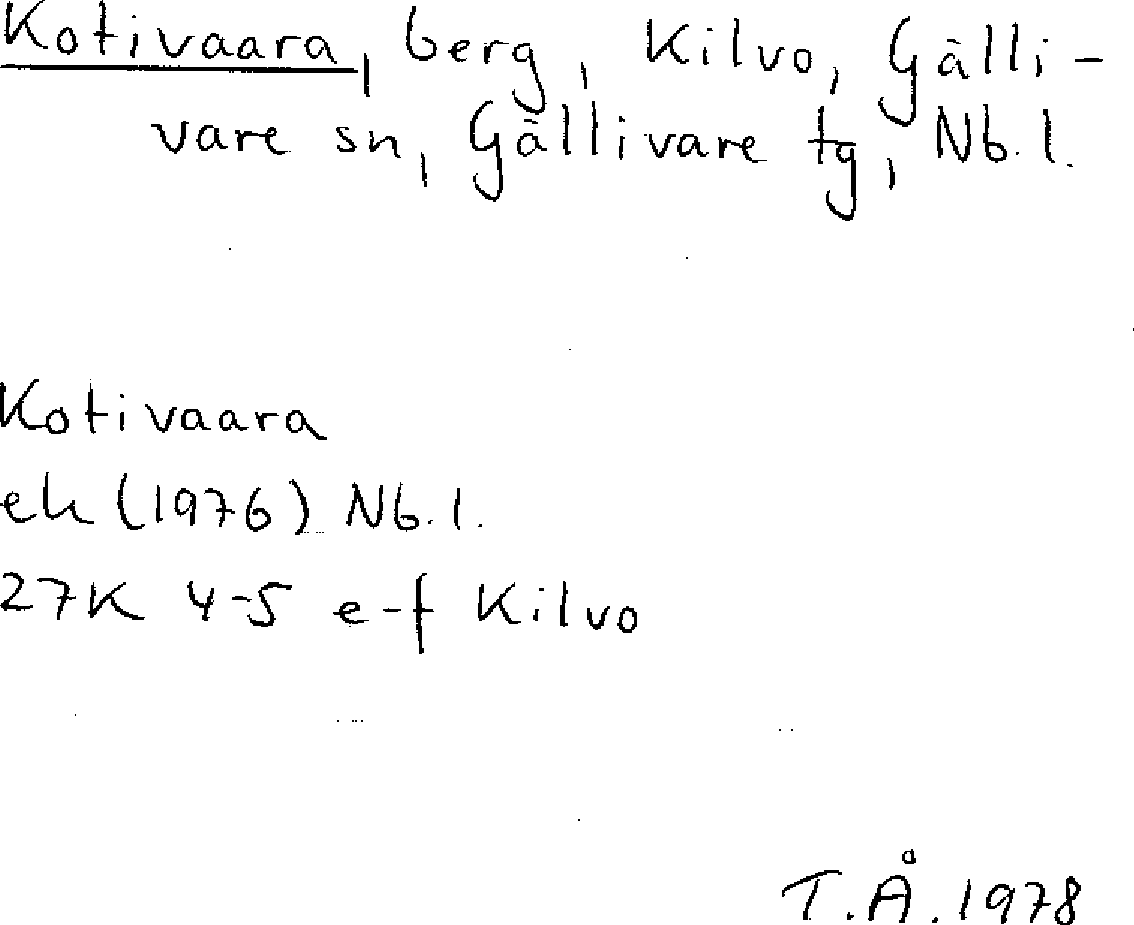 Kotivaara, berg, Kilvo, Gälli-
vare sn, Gällivare tg, Nb. l.
Kotivaara
ek (1976) Nb. l.
27K 4-5 e-f Kilvo
T.Å. 1978